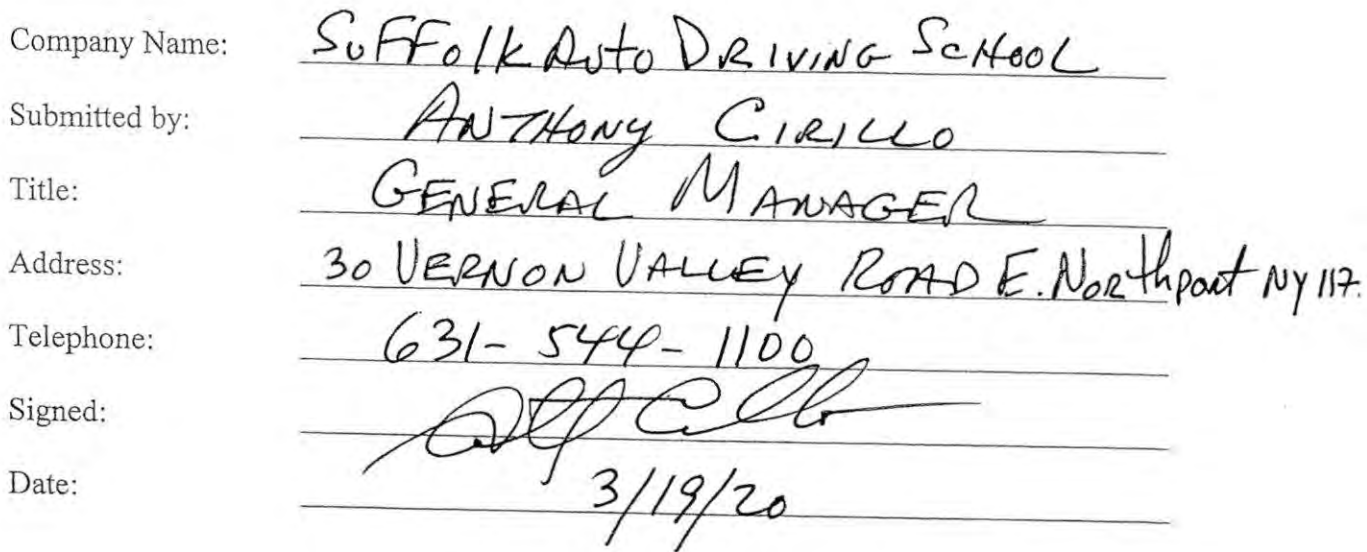 Company Name: SuFFolk Auto DRIVING ScHooL
Submitted by: ANTHONY CIRILLO
Title: GENERAL MANAGER
Address: 30 VERNON VALLEY ROAD E. NoRthport NY 117
Telephone: 631-544-1100
Signed:
Date: 3/19/20